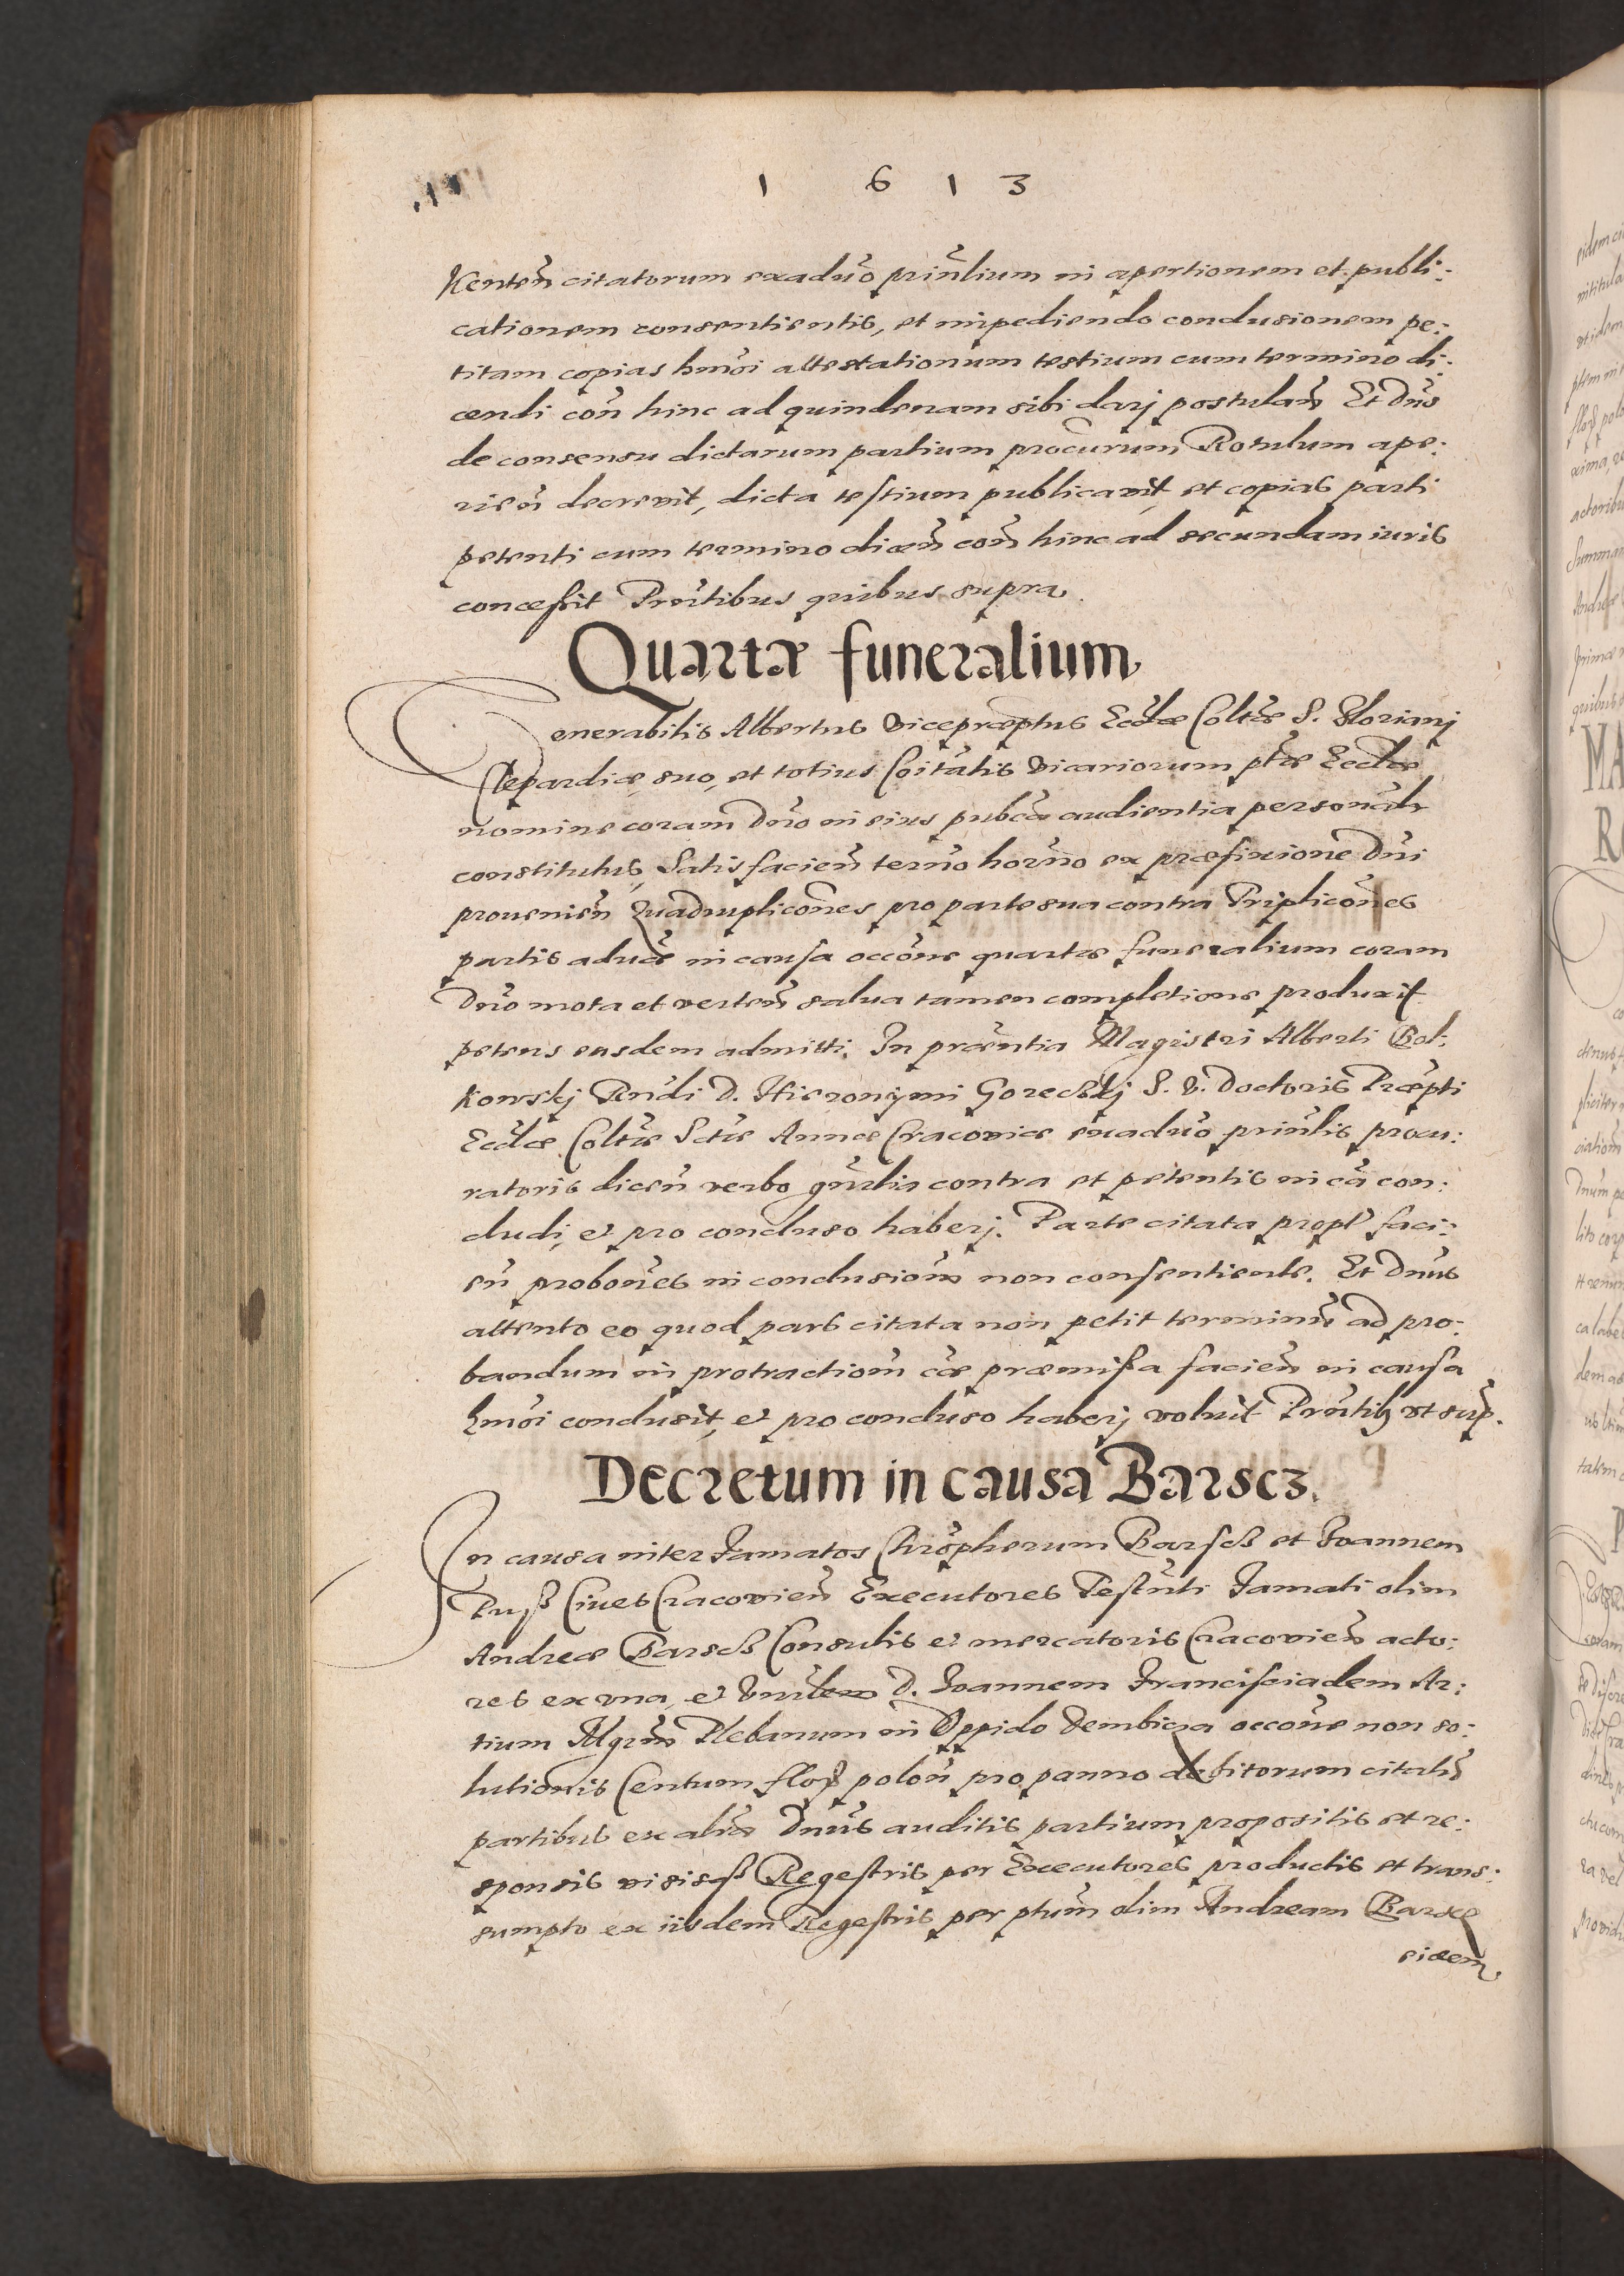 1 6 1 3
Kenteñ citatorum exaduõ prinĩlium in apertionem et publi:
cationem consentientis, et impediendo conclusionem pe:
titam copias hmõi attestationum testium cum termino di:
cendi coñ hinc ad quindenam sibi darj postulañ Et Dñs
de consensu dictarum partium procũrum Rotulum ape:
rieñ decrevit, dicta testium publicavit, et copias parti
petenti cum termino diceñ coñ hinc ad secundam iuris
conceßit Prñtibus quibus supra.
Quartæ funeralium
Venerabilis Albertus Vicepræptus Ecclæ Coltæ S. Florianj
Clepardiæ, suo, et totius Coitatis Vicariorum ptæ Ecclæ
nomine coram Dño in eius pubca audientia personalr
constitutus, Satisfacieñ termõ horño ex præfixione Dñi
provenieñ Quadruplicões pro parte sua contra Triplicões
partis aduæ in causa occõne quartæ funeralium coram
Dño mota et verteñ salua tamen completione produxit
petens easdem admitti. In præntia Magistri Alberti Bol:
Kowskj Rndi D. Hieronymi Goreckj S. V. Doctoris Præpti
Ecclæ Coltæ Sctæ Annæ Cracoviæ exaduõ prinlis procu:
ratoris diceñ verbo gñrlia contra et petentis in cã con:
cludi, et pro concluso haberj. Parte citata propt faci:
eñ probões in conclusioñ non consentiente. Et Dnus
attento eo quod pars citata non petit terminũ ad pro:
bandum in protractioñ cæ præmißa facieñ in causa
hmõi conclusit, et pro concluso haberj voluit Prñtibȝ ut sup.
Decretum in causa Barscz.
In causa inter Famatos Chrõpherum Barscß et Joannem
Puß Cives Cracovieñ Executores Testñti Famati olim
Andreæ Barscß Consulis et mercatoris Cracovieñ acto:
res ex vna, et Vnrlem D. Joannem Francisciadem Ar:
tium Mgrum Plebanum in Oppido Dembicza occõne non so:
lutionis Centum flor poloñ pro panno debitorum citatũ
partibus ex altera Dnũs auditis partium propositis et re:
sponsis visisqȝ Regestris per Executores productis et trans:
sumpto ex iisdem Regestris per ptum olim Andream Barscz
eidem